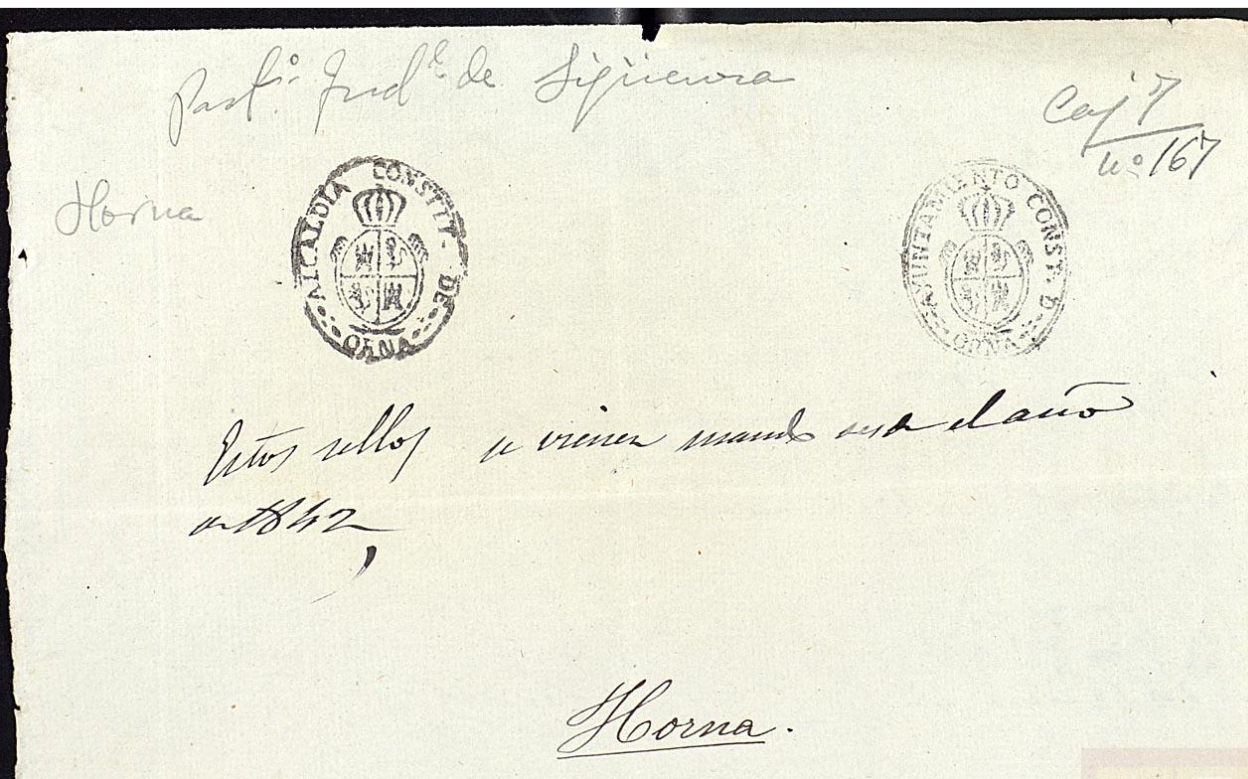 Part.º Jud.l de Sigüenza
Caj 7
nº 167
Horna
ALCALDIA CONSTIT. DE ORNA
AYUNTAMIENTO CONST. D ORNA
Estos sellos se vienen usando desde el año
de 1842,
Horna.